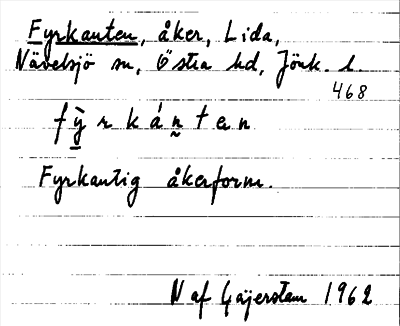 Fyrkanten, åker, Lida,
Nävelsjö sn, Östra hd, Jönk. l.
468
fỳrkánten
Fyrkantig åkerform.
N af Geijerstam 1962